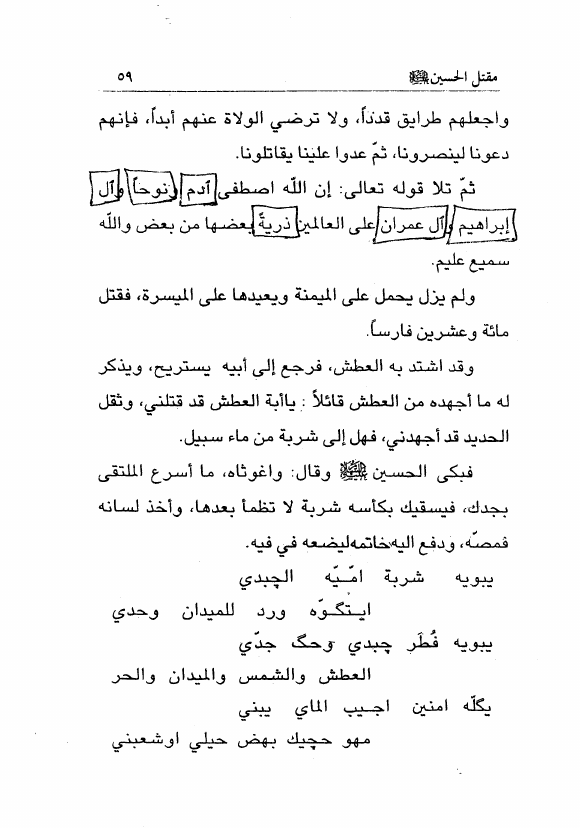 مقتل الحسين ﷺ ٥٩
واجعلهم طرايق قدداً، ولا ترضي الولاة عنهم أبداً، فإنهم
دعونا لينصرونا، ثمّ عدوا علينا يقاتلونا.
ثمّ تلا قوله تعالى: إن الله اصطفى آدم ونوحاً وآل
إبراهيم وآل عمران على العالمين ذريةً بعضها من بعض والله
سميع عليم.
ولم يزل يحمل على الميمنة ويعيدها على الميسرة، فقتل
مائة وعشرين فارساً.
وقد اشتد به العطش، فرجع إلى أبيه يستريح، ويذكر
له ما أجهده من العطش قائلاً : ياأبة العطش قد قتلني، وثقل
الحديد قد أجهدني، فهل إلى شربة من ماء سبيل.
فبكى الحسين ﷺ وقال: واغوثاه، ما أسرع الملتقى
بجدك، فيسقيك بكأسه شربة لا تظمأ بعدها، وأخذ لسانه
فمصّه، ودفع اليه خاتمه ليضعه في فيه.
يبويه شربة امّيّه الچبدي
ايتگوّه ورد للميدان وحدي
يبويه فُطَر چبدي وحگ جدّي
العطش والشمس والميدان والحر
يگلّه امنين اجيب الماي يبني
مهو حچيك بهض حيلي اوشعبني